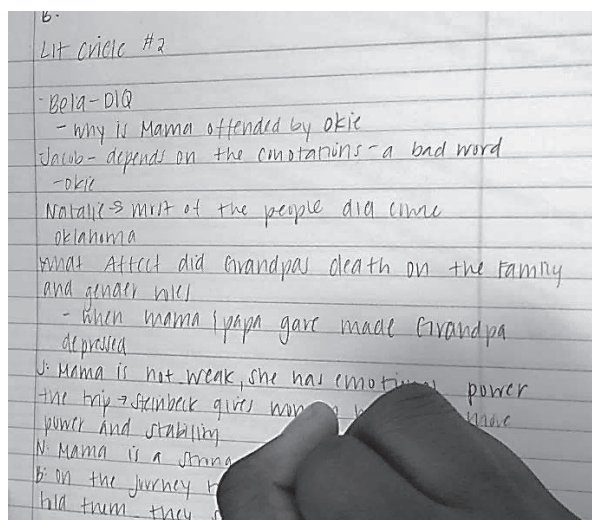 B.
Lit Cricle #2
- Bela - DIQ
- why is Mama offended by okie
Jacob - depends on the conotations - a bad word
- okie
Natalie → most of the people did come
oklahoma
What Affect did Grandpas death on the family
and gender roles
- when mama & papa gave made Grandpa
depressed
J: Mama is not weak, she has emotional power
the trip → Steinbeck gives more
power and stability
N: Mama is a strong
B: on the journey
told them they